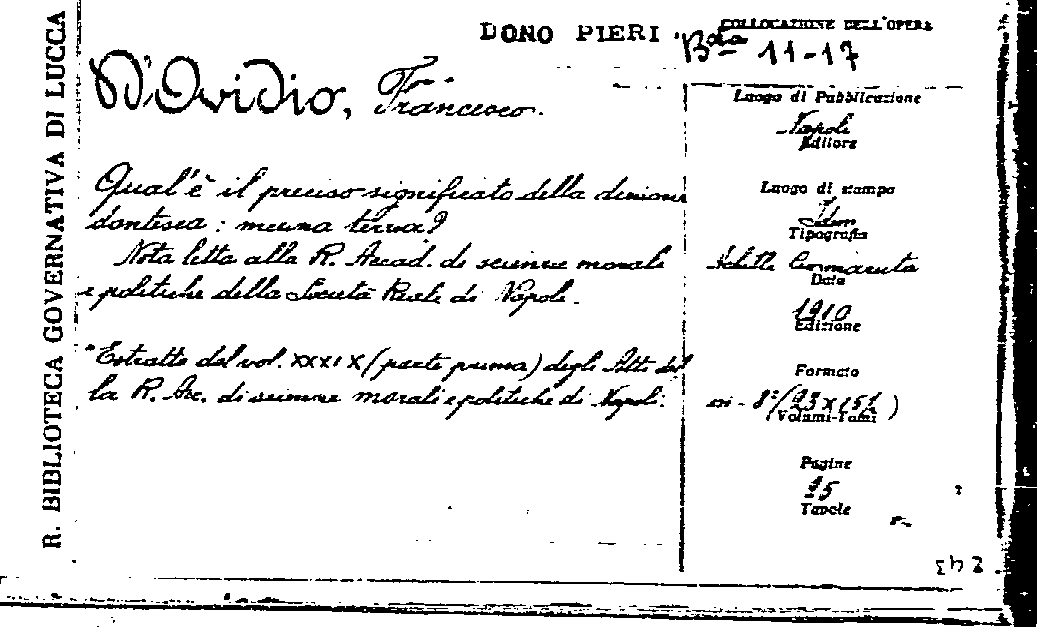 R. BIBLIOTECA GOVERNATIVA DI LUCCA
DONO PIERI
COLLOCAZIONE DELL'OPERA
Bta 11-17
D'Ovidio, Francesco.
Qual'è il preciso significato della dizione
dantesca: meuma terra?
Nota letta alla R. Accad. di scienze morali
e politiche della Società Reale di Napoli.
"Estratto dal vol. XXXIX (parte prima) degli Atti del
la R. Acc. di scienze morali e politiche di Napoli.
Luogo di Pubblicazione
Napoli
Editore
Luogo di stampa
Idem
Tipografia
Data
1910
Edizione
Formato
in-8º (23 x 15½)
(Volumi-Tomi)
Pagine
Tavole